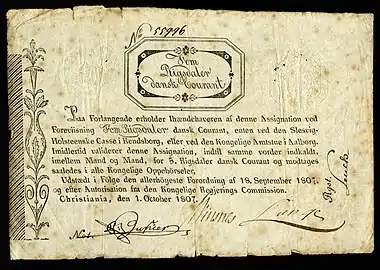 No 55996
Fem
Rigsdaler
dansk Courant
Paa Forlangende erholder Ihændehaveren af denne Assignation ved
Foreviisning Fem Rigsdaler dansk Courant, enten ved den Slesvig-
Holsteenske Casse i Rendsborg, eller ved den Kongelige Amtstue i Aalborg.
Imidlertid validerer denne Assignation, indtil samme vorder indkaldt,
imellem Mand og Mand, for 5. Rigsdaler dansk Courant og modtages
saaledes i alle Kongelige Oppebörseler.
Udstædt i Følge den allerhöigste Forordning af 18. September 1807.
og efter Autorisation fra den Kongelige Regjerings Commission.
Christiania, den 1. October 1807.
Not.